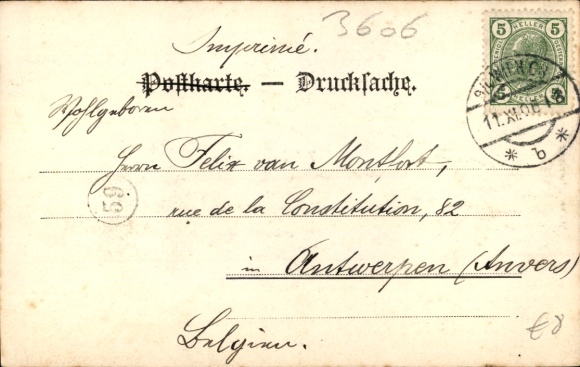 3606
Imprimé.
5 HELLER 5
Postkarte. — Drucksache.
WIEN
11.XI.06
* b *
Wohlgeboren
Herrn Felix van Montfort,
rue de la Constitution, 82
in Antwerpen (Anvers)
Belgien.
59
€8